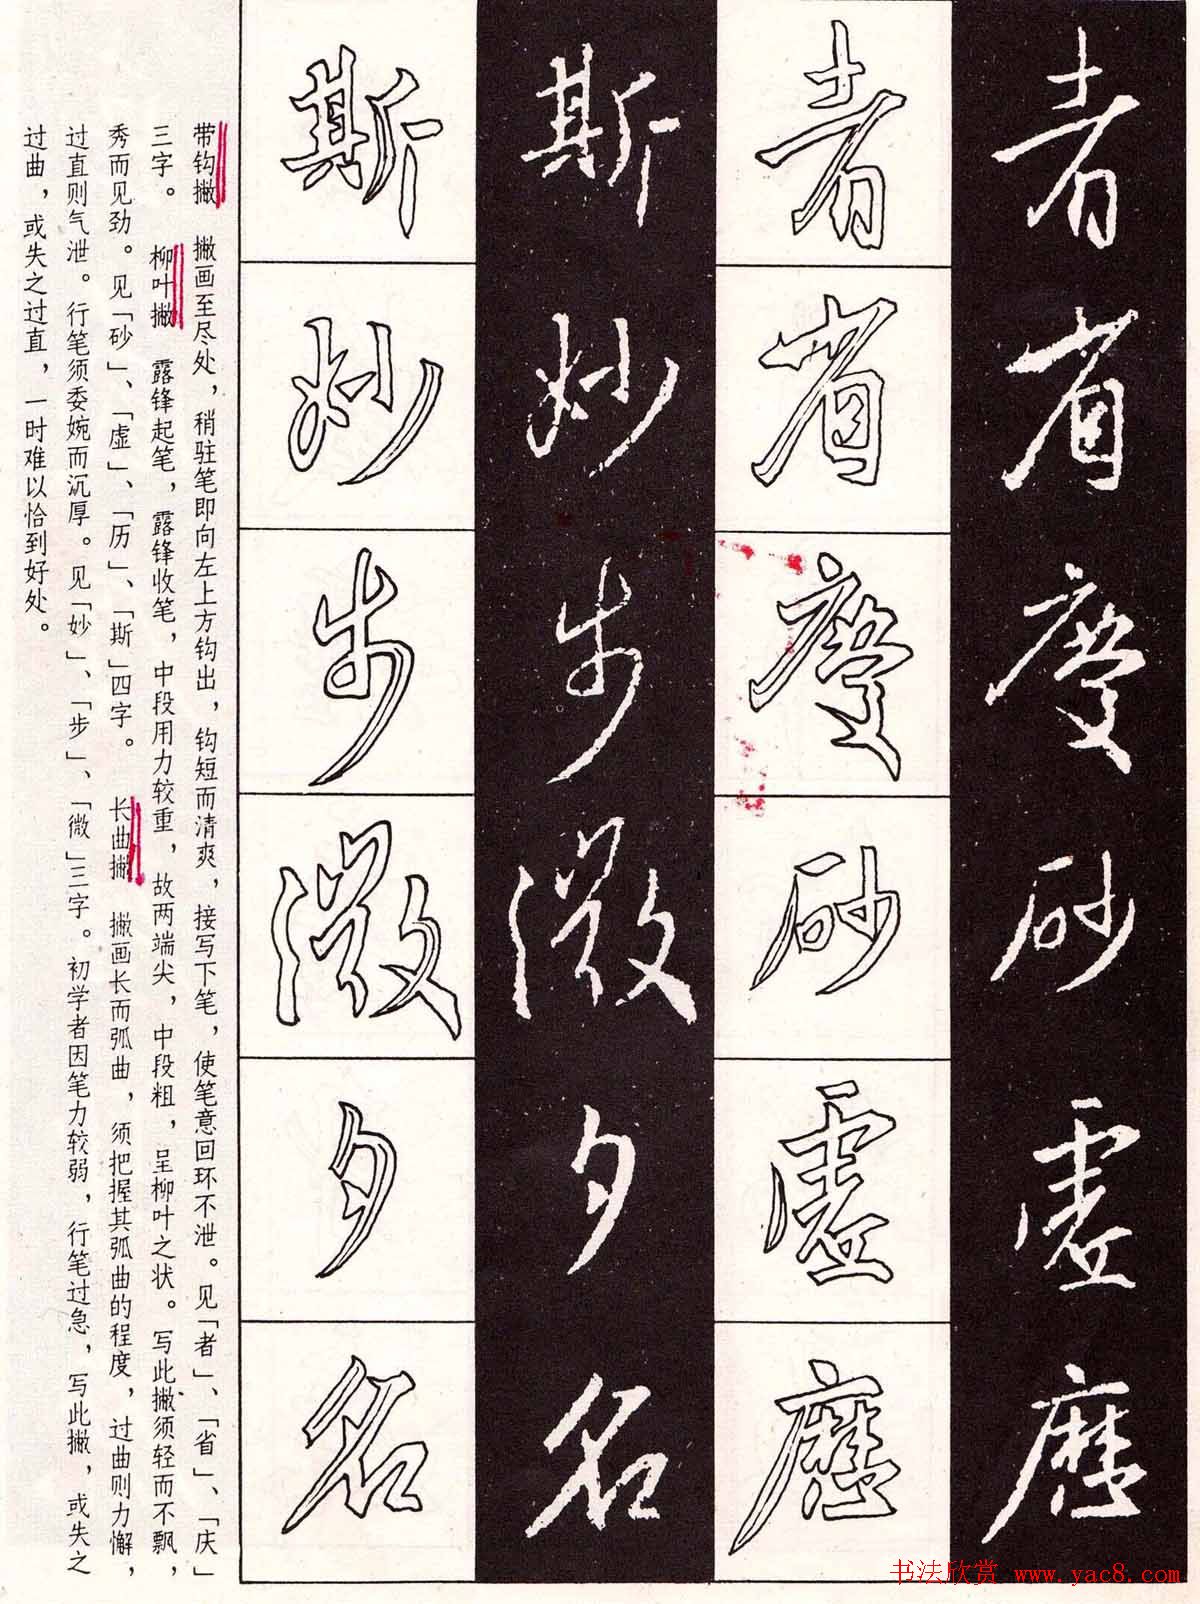 者省慶砂虛歷
者省慶砂虛歷
斯妙步微夕名
斯妙步微夕名
带钩撇　撇画至尽处，稍驻笔即向左上方钩出，钩短而清爽，接写下笔，使笔意回环不泄。见「者」、「省」、「庆」
三字。　柳叶撇　露锋起笔，露锋收笔，中段用力较重，故两端尖，中段粗，呈柳叶之状。写此撇须轻而不飘，
秀而见劲。见「砂」、「虚」、「历」、「斯」四字。　长曲撇　撇画长而弧曲，须把握其弧曲的程度，过曲则力懈，
过直则气泄。行笔须委婉而沉厚。见「妙」、「步」、「微」三字。初学者因笔力较弱，行笔过急，写此撇，或失之
过曲，或失之过直，一时难以恰到好处。
书法欣赏 www.yac8.com